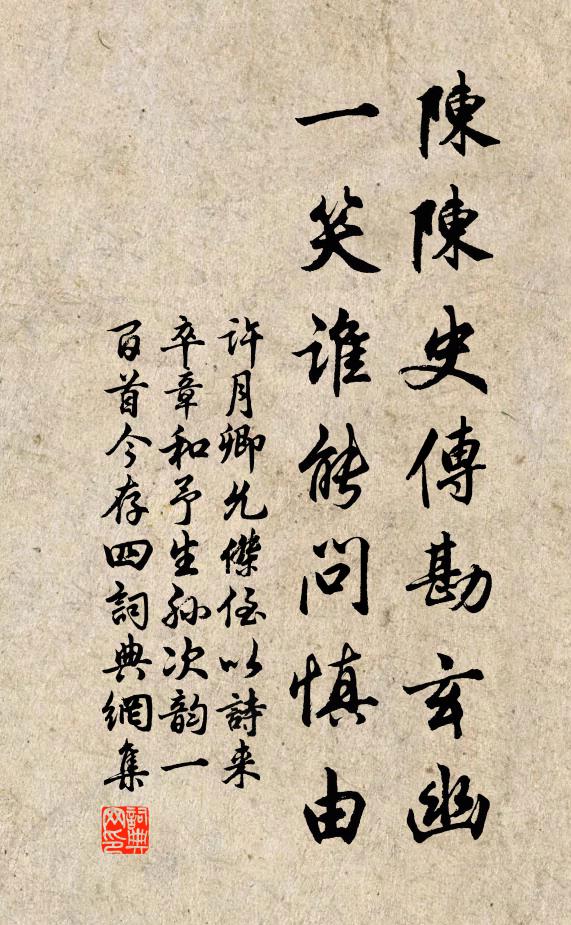 陳陳史傳勘玄幽
一笑誰能問慎由
許月卿允傑侄以詩来
卒章和予生孙次韵一
百首今存四詞典網集
詞典网印